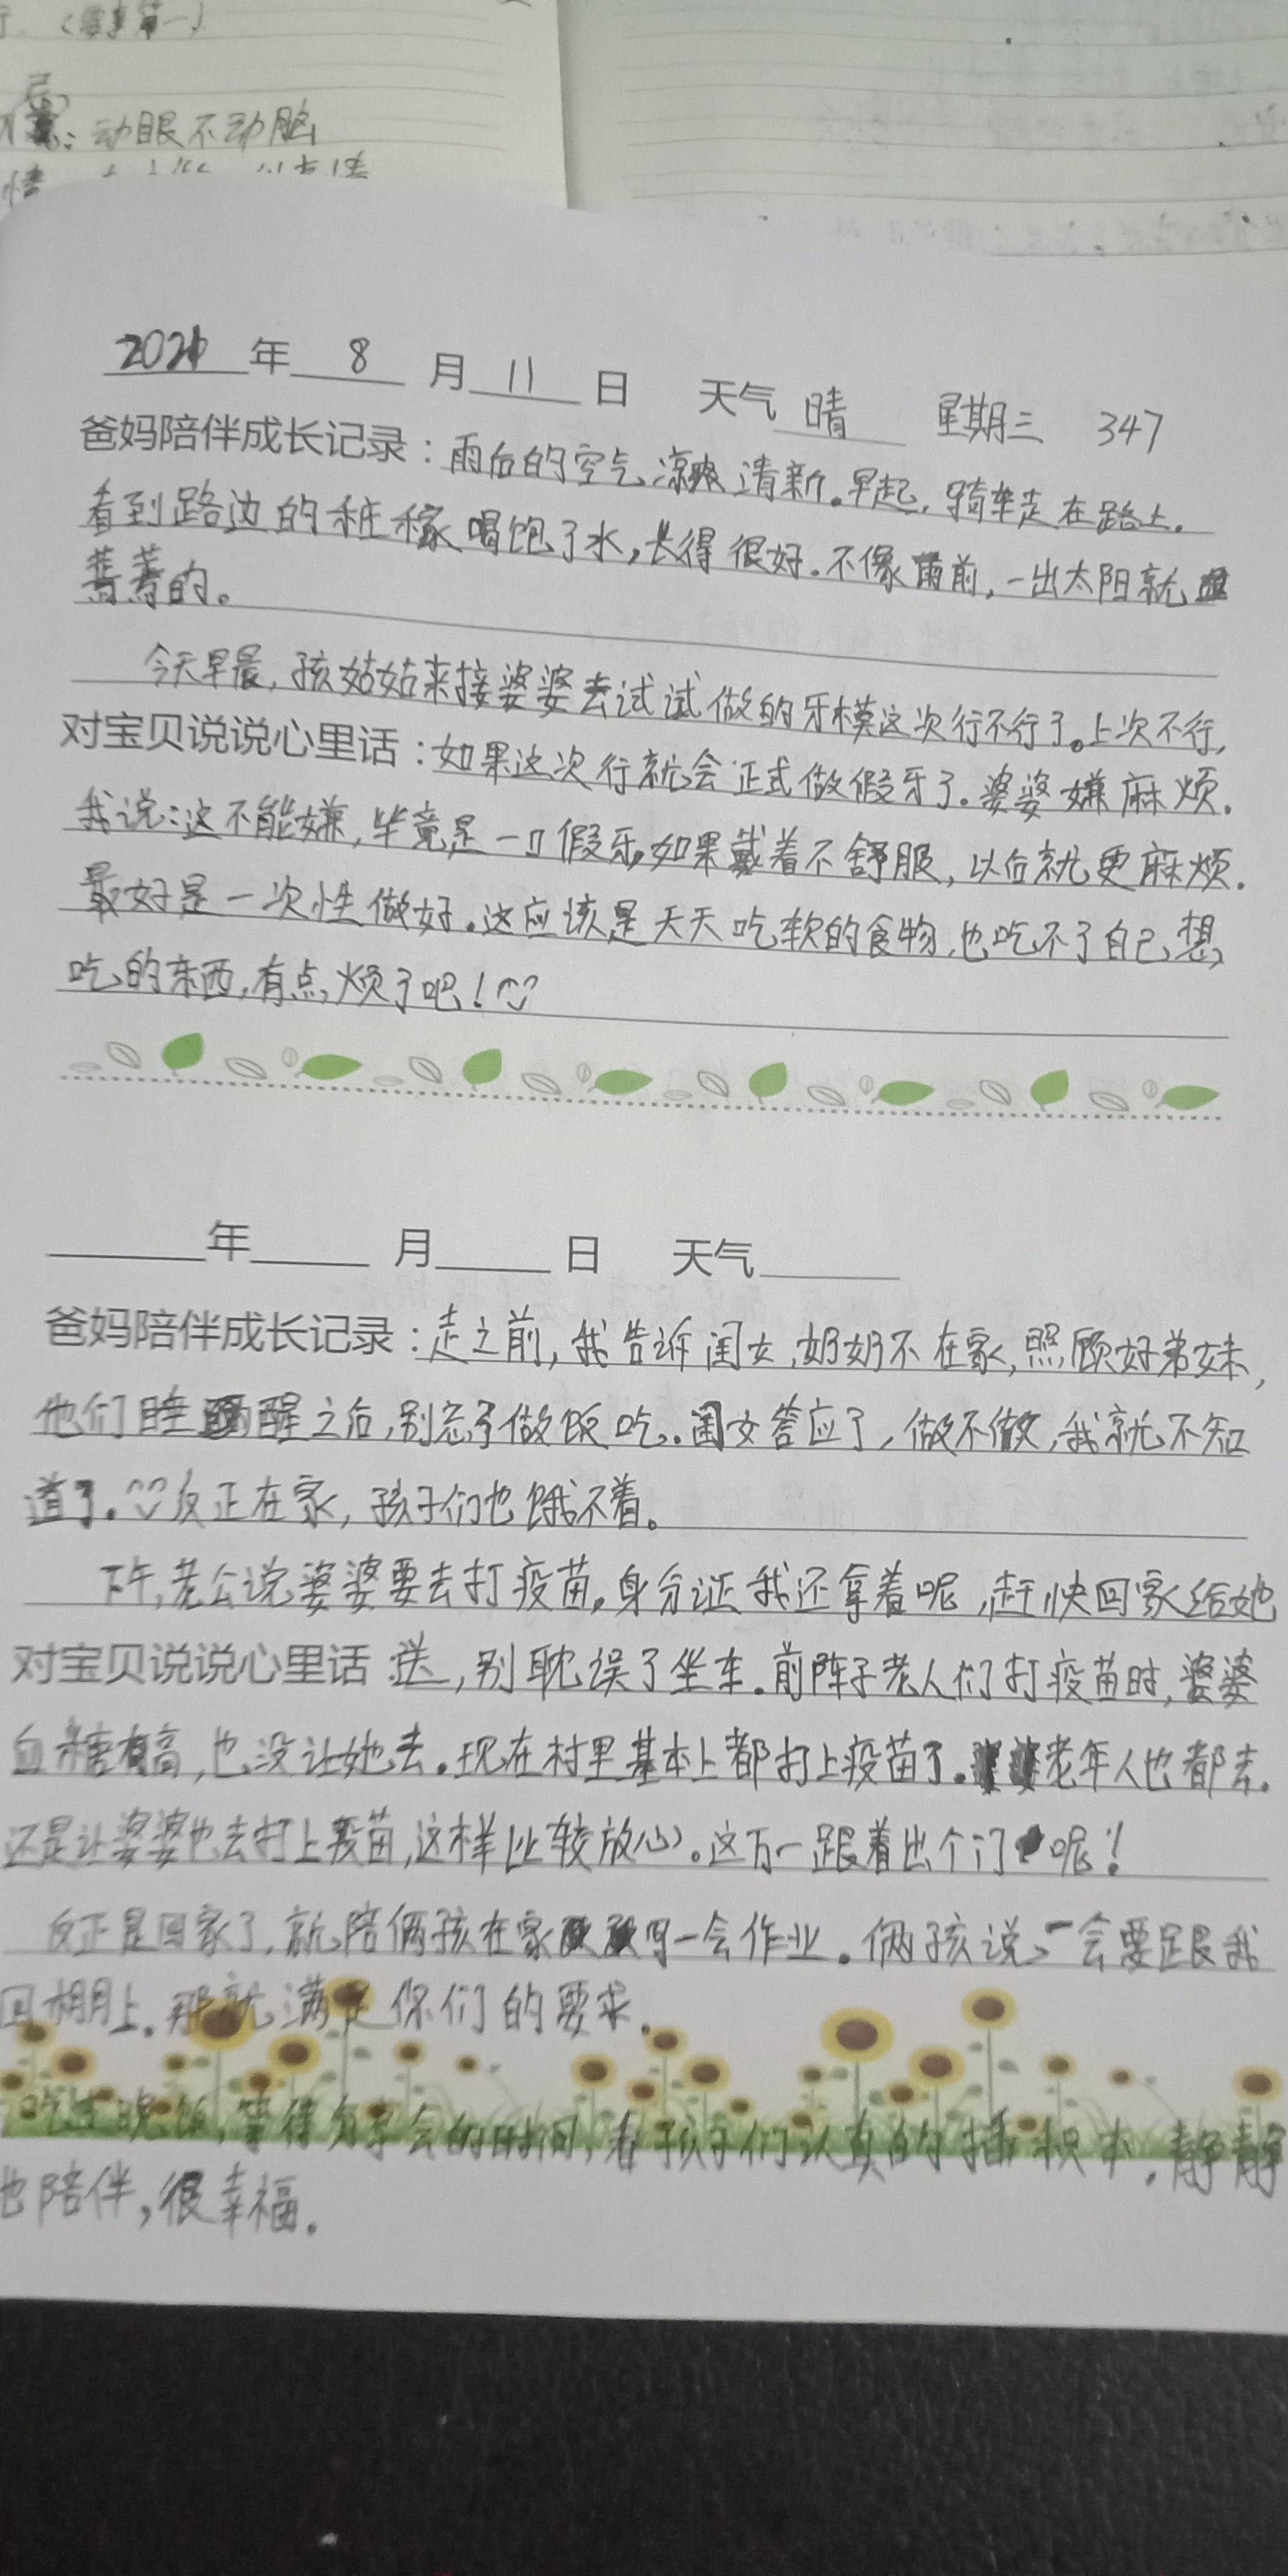 动眼不动脑
2021年 8 月 11 日 天气 晴 星期三 347
爸妈陪伴成长记录：雨后的空气凉爽清新。早起，骑车走在路上。
看到路边的庄稼喝饱了水，长得很好。不像雨前，一出太阳就
蔫蔫的。
今天早晨，孩姑姑来接婆婆去试试做的牙模这次行不行了。上次不行，
对宝贝说说心里话：如果这次行就会正式做假牙了。婆婆嫌麻烦。
我说：这不能嫌，毕竟是一口假牙，如果戴着不舒服，以后就更麻烦。
最好是一次性做好。这应该是天天吃软的食物，也吃不了自己想
吃的东西，有点烦了吧！
年 月 日 天气
爸妈陪伴成长记录：走之前，我告诉闺女，奶奶不在家，照顾好弟妹，
他们睡醒之后，别忘了做饭吃。闺女答应了，做不做，我就不知
道了。反正在家，孩子们也饿不着。
下午，老公说婆婆要去打疫苗。身份证我还拿着呢，赶快回家给她
对宝贝说说心里话：送，别耽误了坐车。前阵子老人们打疫苗时，婆婆
血糖有高，也没让她去。现在村里基本上都打上疫苗了。老年人也都去。
还是让婆婆也去打上疫苗，这样比较放心。这万一跟着出个门呢！
反正是回家了，就陪俩孩在家写一会作业。俩孩说，一会要跟我
回棚上。那就满足你们的要求。
吃过晚饭，等待分享会的时间，看孩子们认真的插积木，静静
地陪伴，很幸福。